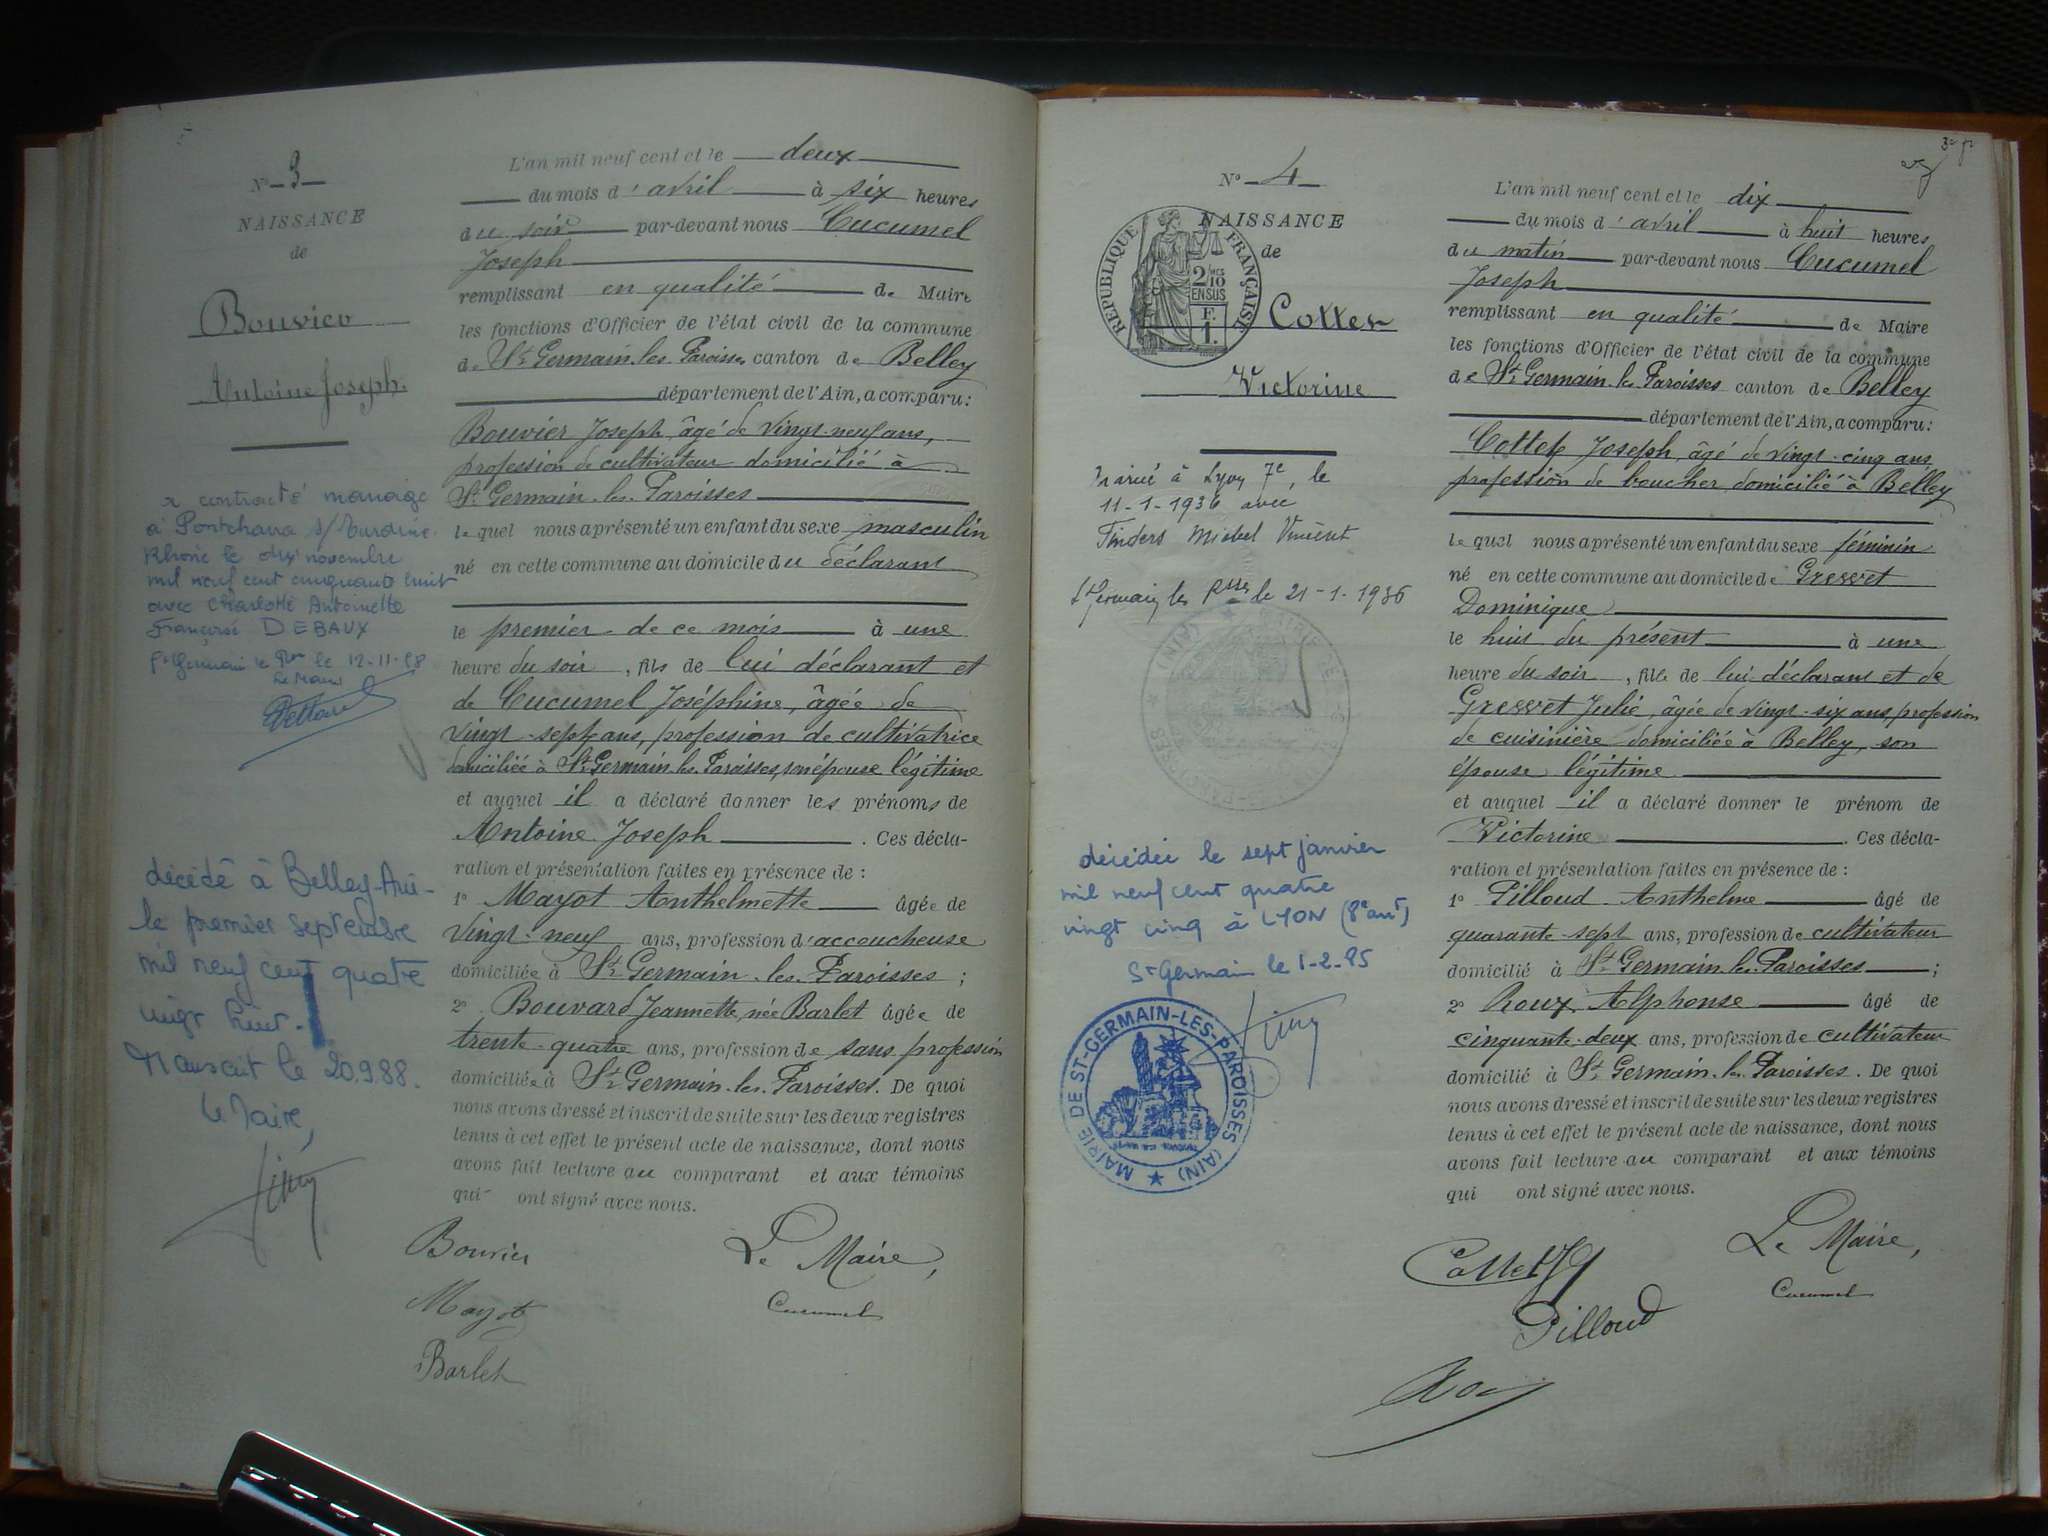 N° 3
NAISSANCE
de
Bouvier
Antoine Joseph.
a contracté mariage
à Pontcharra s/Turdine.
Rhône le dix novembre
mil neuf cent cinquante huit
avec Charlotte Antoinette
Françoise DEBAUX
St Germain le le 12-11-58
Le Maire
décédé à Belley-Ain-
le premier septembre
mil neuf cent quatre
vingt huit.
le 20.9.88.
Le Maire,
L'an mil neuf cent et le deux
du mois d'avril à six heures
du soir par-devant nous Cucumel
Joseph
remplissant en qualité de Maire
les fonctions d'Officier de l'état civil de la commune
de St Germain-les-Paroisses canton de Belley
département de l'Ain, a comparu:
Bouvier Joseph, âgé de vingt-neuf ans,
profession de cultivateur domicilié à
St Germain-les-Paroisses
lequel nous a présenté un enfant du sexe masculin
né en cette commune au domicile du déclarant
le premier de ce mois à une
heure du soir, fils de lui déclarant et
de Cucumel Joséphine, âgée de
vingt-sept ans, profession de cultivatrice
domiciliée à St Germain-les-Paroisses, son épouse légitime
et auquel il a déclaré donner les prénoms de
Antoine Joseph. Ces décla-
ration et présentation faites en présence de :
1° Mayot Anthelmette âgée de
vingt-neuf ans, profession d'accoucheuse
domiciliée à St Germain-les-Paroisses ;
2° Bouvard Jeannette, née Barlet âgée de
trente-quatre ans, profession de sans profession
domiciliée à St Germain-les-Paroisses. De quoi
nous avons dressé et inscrit de suite sur les deux registres
tenus à cet effet le présent acte de naissance, dont nous
avons fait lecture au comparant et aux témoins
qui ont signé avec nous.
Bouvier
Le Maire,
Mayot
Cucumel
Barlet
N° 4
NAISSANCE
de
REPUBLIQUE FRANÇAISE
2/10 EN SUS
F. 1.
Cotter
Victorine
Marié à Lyon 7e, le
11-1-1936 avec
Michel Vincent
St Germain les Psses le 21-1-1936
décédée le sept janvier
mil neuf cent quatre
vingt cinq à LYON (8e arrt)
St Germain le 1-2-85
MAIRIE DE ST-GERMAIN-LES-PAROISSES (AIN)
L'an mil neuf cent et le dix
du mois d'avril à huit heures
du matin par-devant nous Cucumel
Joseph
remplissant en qualité de Maire
les fonctions d'Officier de l'état civil de la commune
de St Germain-les-Paroisses canton de Belley
département de l'Ain, a comparu:
Joseph, âgé de vingt-cinq ans
profession de boucher, domicilié à Belley
lequel nous a présenté un enfant du sexe féminin
né en cette commune au domicile de Gressot
Dominique
le huit du présent à une
heure du soir, fille de lui déclarant et de
Gressot Julie, âgée de vingt-six ans, profession
de cuisinière domiciliée à Belley, son
épouse légitime
et auquel il a déclaré donner le prénom de
Victorine. Ces décla-
ration et présentation faites en présence de :
1° Pilloud Anthelme âgé de
quarante-sept ans, profession de cultivateur
domicilié à St Germain-les-Paroisses ;
2° Roux Alphonse âgé de
cinquante-deux ans, profession de cultivateur
domicilié à St Germain-les-Paroisses. De quoi
nous avons dressé et inscrit de suite sur les deux registres
tenus à cet effet le présent acte de naissance, dont nous
avons fait lecture au comparant et aux témoins
qui ont signé avec nous.
Le Maire,
Cucumel
Pilloud